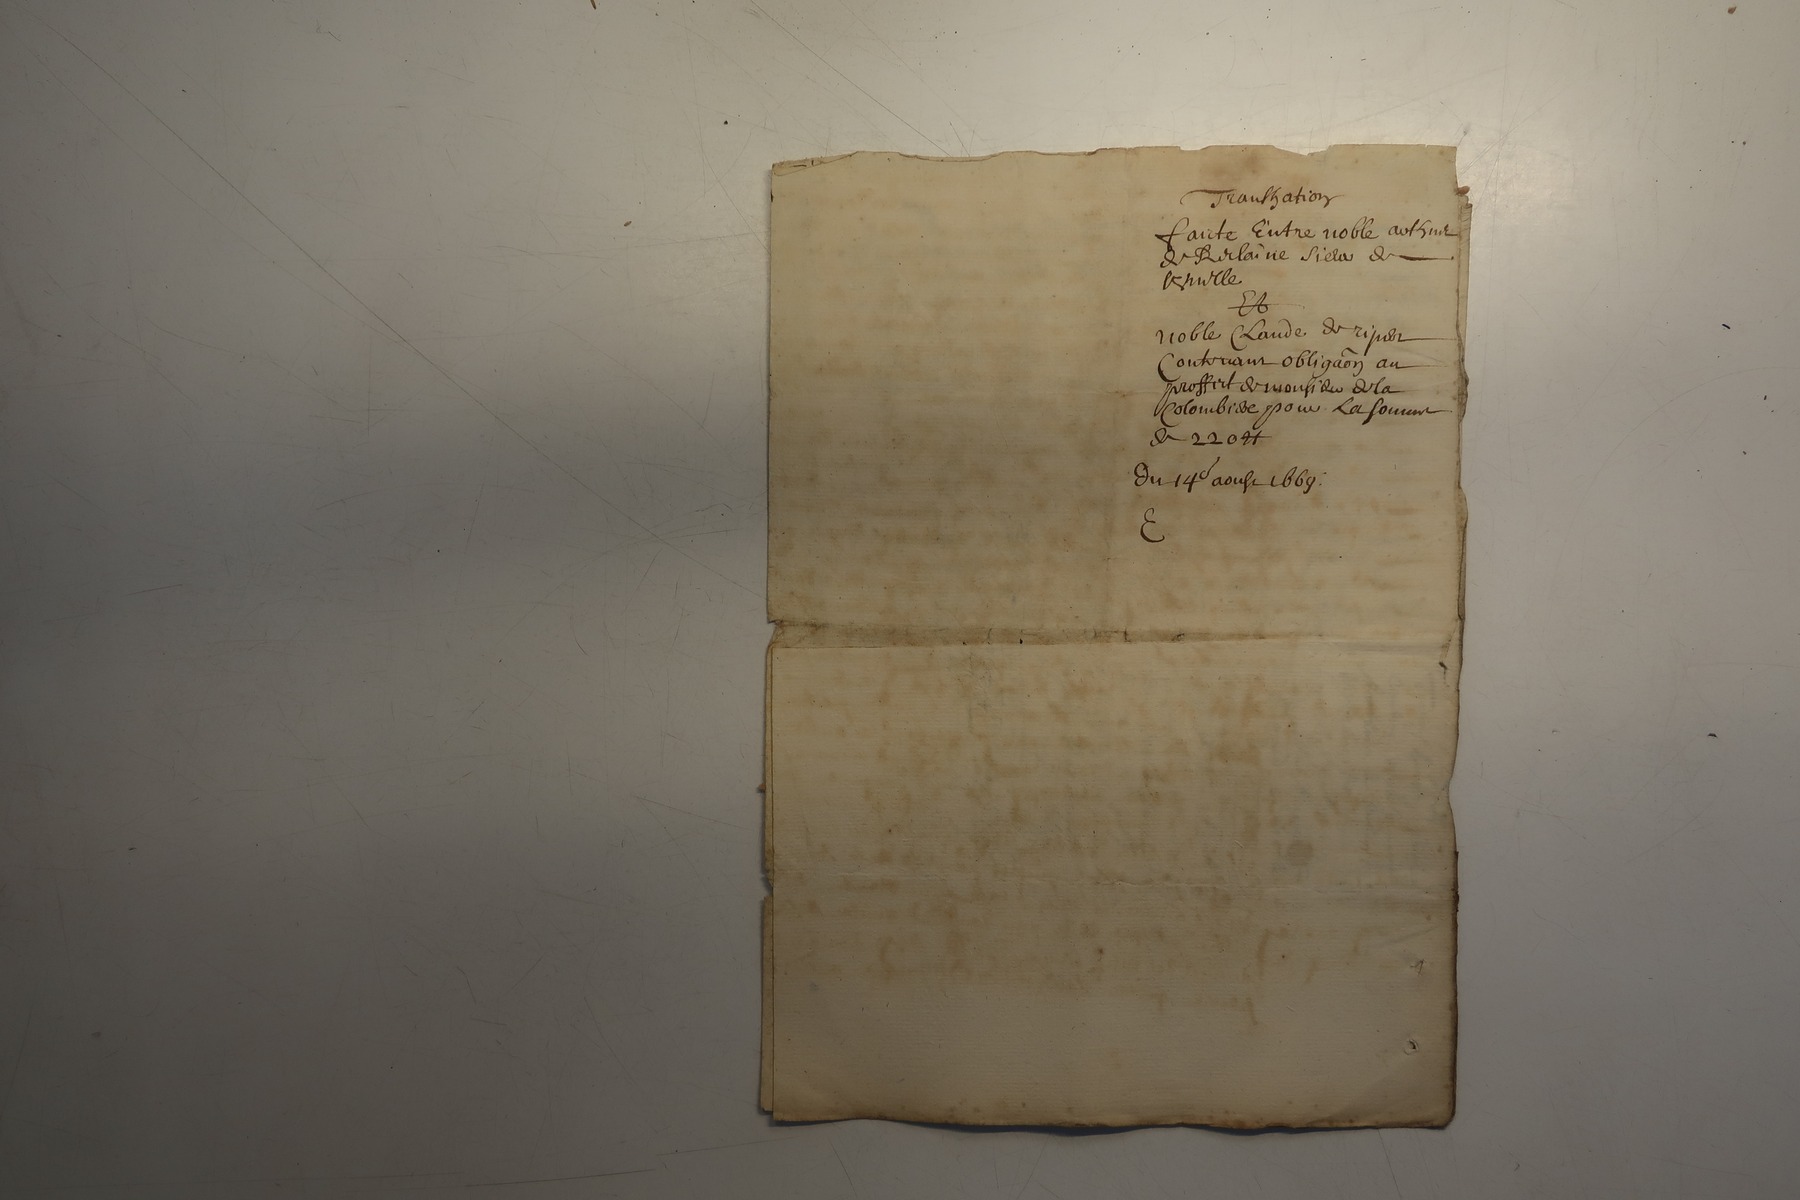 Transhation
faicte Entre noble arthur
de Relaine Sieur de
noble Claude de ripert
Contenant obligãon au
proffict de monsieur de la
Colombiere pour La somme
de 220 tt
Du 14e aoust 1669.
E